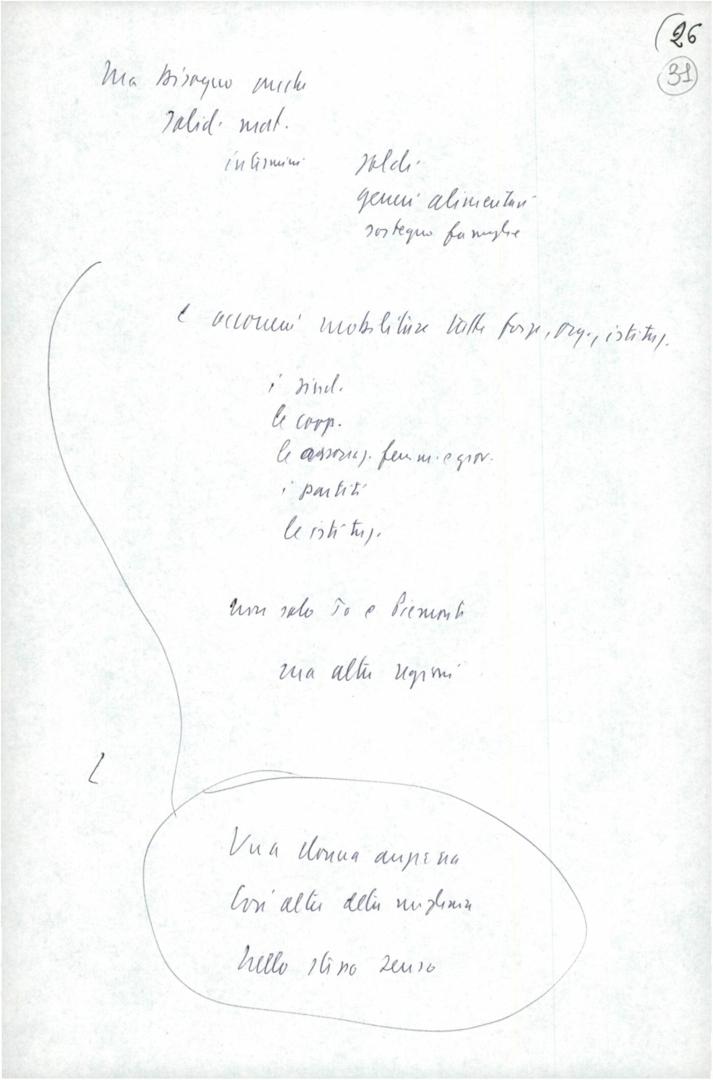 (26
31
Ma bisogno anche
solid. mat.
in termini soldi
generi alimentari
sostegno famiglie
e occorrerà mobilitare tutte forze, org., istituz.
i sind.
le coop.
le associaz. femm. e giov.
i partiti
le istituz.
non solo To e Piemonte
ma altre regioni
Una donna
Così altre delle migliaia
nello stesso senso